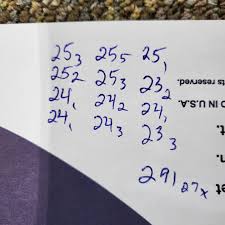 25₃ 25₅ 25₁
25₂ 25₃ 23₂
24₁ 24₂ 24₁
24₁ 24₃ 23₃
291 27x
ts reserved.
D IN U.S.A.
t.
n.
et